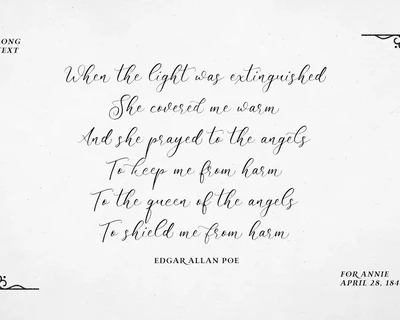 ONG
TEXT
When the light was extinguished
She covered me warm
And she prayed to the angels
To keep me from harm
To the queen of the angels
To shield me from harm
EDGAR ALLAN POE
FOR ANNIE
APRIL 28, 184